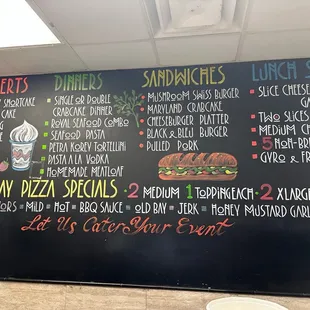 ERTS
Y SHORTCAKE
CAKE
DINNERS
SINGLE OR DOUBLE
CRABCAKE DINNER
ROYAL SEAFOOD COMBO
SEAFOOD PASTA
PETRA KOREY TORTELLINI
PASTA A LA VODKA
HOMEMADE MEATLOAF
SANDWICHES
MUSHROOM SWISS BURGER
MARYLAND CRABCAKE
CHEESEBURGER PLATTER
BLACK & BLEU BURGER
PULLED PORK
LUNCH S
SLICE CHEESE
GA
TWO SLICES
MEDIUM CH
5 NON-BRE
GYRO & FR
AY PIZZA SPECIALS - 2 MEDIUM 1 TOPPING EACH - 2 XLARG
ORS = MILD = HOT = BBQ SAUCE = OLD BAY = JERK = HONEY MUSTARD GARL
LET US CATER YOUR EVENT